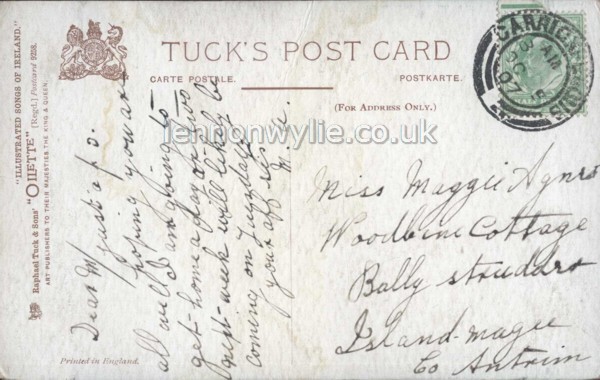 "ILLUSTRATED SONGS OF IRELAND."
Raphael Tuck & Sons' "OILETTE" [Regd.] Postcard 9258.
ART PUBLISHERS TO THEIR MAJESTIES THE KING & QUEEN.
TUCK'S POST CARD
CARTE POSTALE. POSTKARTE.
(FOR ADDRESS ONLY.)
CARRICK
5 AM
OC 5
07
lennonwylie.co.uk
Dear M just a p.c.
hoping you are
all well I am going to
get home a day or two
next week will likely be
coming on Tuesday
your aff sis
M. A.
Miss Maggie Agnes
Woodbine Cottage
Bally strudder
Island-magee
Co Antrim
Printed in England.